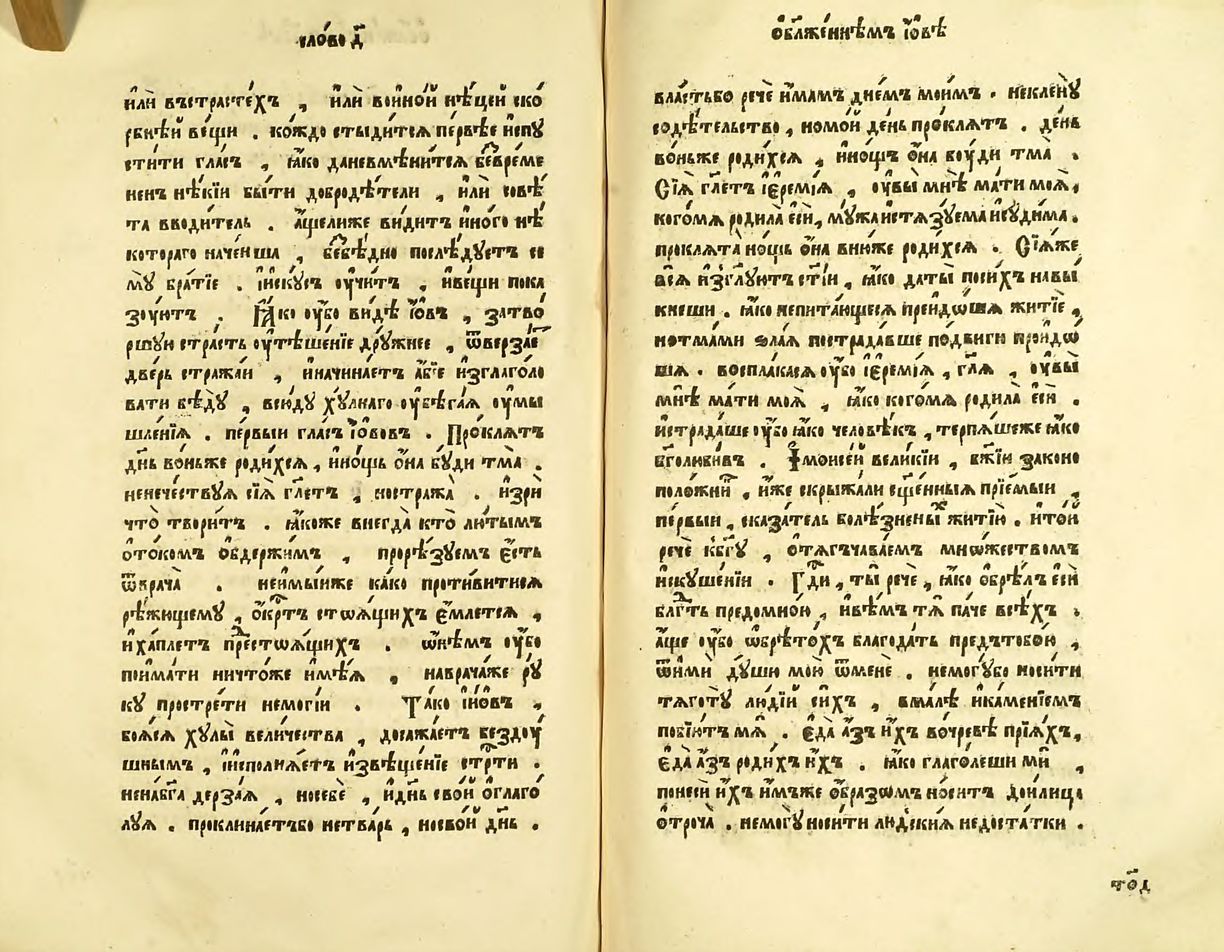 сло́во д҃
и҆лѝ въстрасте́хъ , и҆лѝ во и҆но́й нѣ́цей ско́
рбнѣй ве́щи . ко́ждо стыди́тсѧ пе́рвѣе и҆спу
сти́ти гла́съ , ꙗ҆́ко даневмѣни́тсѧ бе́време
ненъ нѣ́кїи бы́ти добродѣ́тели , и҆лѝ совѣ́
та вводи́тель . а҆́щелиже ви́дитъ и҆но́го нѣ́
котораго наче́нша , бе́бѣ́дно послѣ́дꙋетъ се
мꙋ̀ бра́тїе . и҆и҆скꙋ́съ ᲂу҆чи́тъ , и҆ве́щи пока
зꙋ́ютъ . Ꙗ҆́ко ᲂу҆́бо ви́дѣ і҆́ѡвъ , затво́
ршꙋи стра́сть ᲂу҆тѣше́нїе дрꙋ́жнее , ѿверза́е
две́рь стра́жꙋи , и҆начина́етъ а҆́бїе и҆зглаго́ло
вати бѣдꙋ̀ , всю́дꙋ хꙋ́лнаго ᲂу҆бѣга́ѧ ᲂу҆мы
шле́нїѧ . пе́рвыи гла́съ і҆́ѡвовъ . Про́клѧтъ
дн҃ь во́ньже роди́хсѧ , и҆но́щь ѻ҆на̀ бꙋ́ди тма̀ .
ненече́ствꙋѧ сїѧ̀ гл҃етъ , ностража̀ . и҆зрѝ
что̀ твори́тъ . ꙗ҆́коже внегда̀ кто̀ лю́тымъ
ѻ҆то́комъ ѻ҆бдержи́мъ , прорѣ́зꙋемъ є҆́сть
ѿврача̀ . неи҆мы́иже ка́ко проти́витисѧ
рѣ́жꙋщемꙋ , ѻ҆́крт҃ъ стоѧ́щихъ є҆́млетсѧ ,
и҆ха́плетъ прⷣестѡѧ́щихъ . ѡ҆не́мъ ᲂу҆́бо
пои҆ма́ти ничто́же и҆мѣ́ѧ , наврача́же рꙋ
кꙋ̀ простре́ти немогі́и . Та́ко и҆і҆́ѡвъ ,
боѧ́сѧ хꙋлы̀ вели́чества , досажа́етъ бездꙋ́
шнымъ , и҆и҆сполнѧ́етъ и҆звѣще́нїе стрⷭ҇ти .
ненабг҃а дерза́ѧ , носебѐ , и҆дн҃ь сво́й ѻ҆глаго́
лꙋѧ . проклина́етъбо нетва́рь , носво́й дн҃ь .
ѻ҆блаже́ннѣмъ і҆́ѡвѣ
вла́стьбо речѐ и҆́мамъ дне́мъ мои́мъ . неклені́ꙋ
содѣ́тельство , номо́й де́нь про́клѧтъ . де́нь
во́ньже роди́хсѧ , и҆но́щъ ѻ҆на̀ вᲂу́ди тма̀ .
Сїѧ̀ гл҃етъ і҆єремі́ѧ , ᲂу҆вы̀ мнѣ̀ ма́ти моѧ̀ ,
кого́мѧ родила̀ є҆сѝ , мꙋ́жаистѧзꙋ́ема и҆сꙋди́ма .
проклѧта̀ но́щь ѻ҆на̀ вню́же роди́хсѧ . Сїѧ́же
всѧ̀ и҆згл҃ꙋютъ ст҃і́и , ꙗ҆́ко даты̀ поси́хъ навы́
кнеши . ꙗ҆́ко непита́ющесѧ преидо́шѧ житїѐ ,
нотма́ми ѕла́ѧ пострада́вше по́двиги проидо́
шѧ . воспла́касѧ ᲂу҆́бо і҆єремі́ѧ , гл҃ѧ , ᲂу҆вы̀
мнѣ̀ ма́ти моѧ̀ , ꙗ҆́ко кого́мѧ родила̀ є҆сѝ .
и҆страда́ше ᲂу҆́бо ꙗ҆́ко человѣ́къ , терпѧ́шеже ꙗ҆́ко
бг҃олюби́въ . І҆моисе́й вели́кїи , бж҃їи законо
поло́жнїй , и҆́же скрыжа́ли сщ҃е́нныѧ прїе́мыи ,
пе́рвыи , сказа́тель болѣ́зненыхъ житїю̀ . и҆то́й
речѐ кбг҃ꙋ , ѻ҆тѧгъчава́емъ мно́жествомъ
и҆скꙋше́нїи . Гдⷭ҇и , ты̀ речѐ , ꙗ҆́ко ѻ҆брѣ́лъ є҆сѝ
блгⷣть предомно́ю , и҆вѣ́мъ тѧ̀ па́че всѣ́хъ .
а҆́ще ᲂу҆́бо ѡ҆брѣто́хъ благода́ть предътобо́ю ,
ѿимѝ дꙋ́шꙋ мою̀ ѿменѐ . немогꙋ́бо носи́ти
тѧготꙋ̀ люді́й си́хъ , вма́лѣ и҆ка́менїемъ
побїю́тъ мѧ̀ . є҆да̀ а҆́зъ и҆́хъ вочре́вѣ прїѧ́хъ ,
є҆да̀ а҆́зъ роди́хъ и҆́хъ . ꙗ҆́ко глаго́леши мѝ ,
понесѝ и҆́хъ и҆́мъже ѻ҆́бразомъ но́ситъ дои́лица
ѻ҆троча̀ . немогꙋ̀носи́ти лю́дскиѧ недоста́тки .
то́д